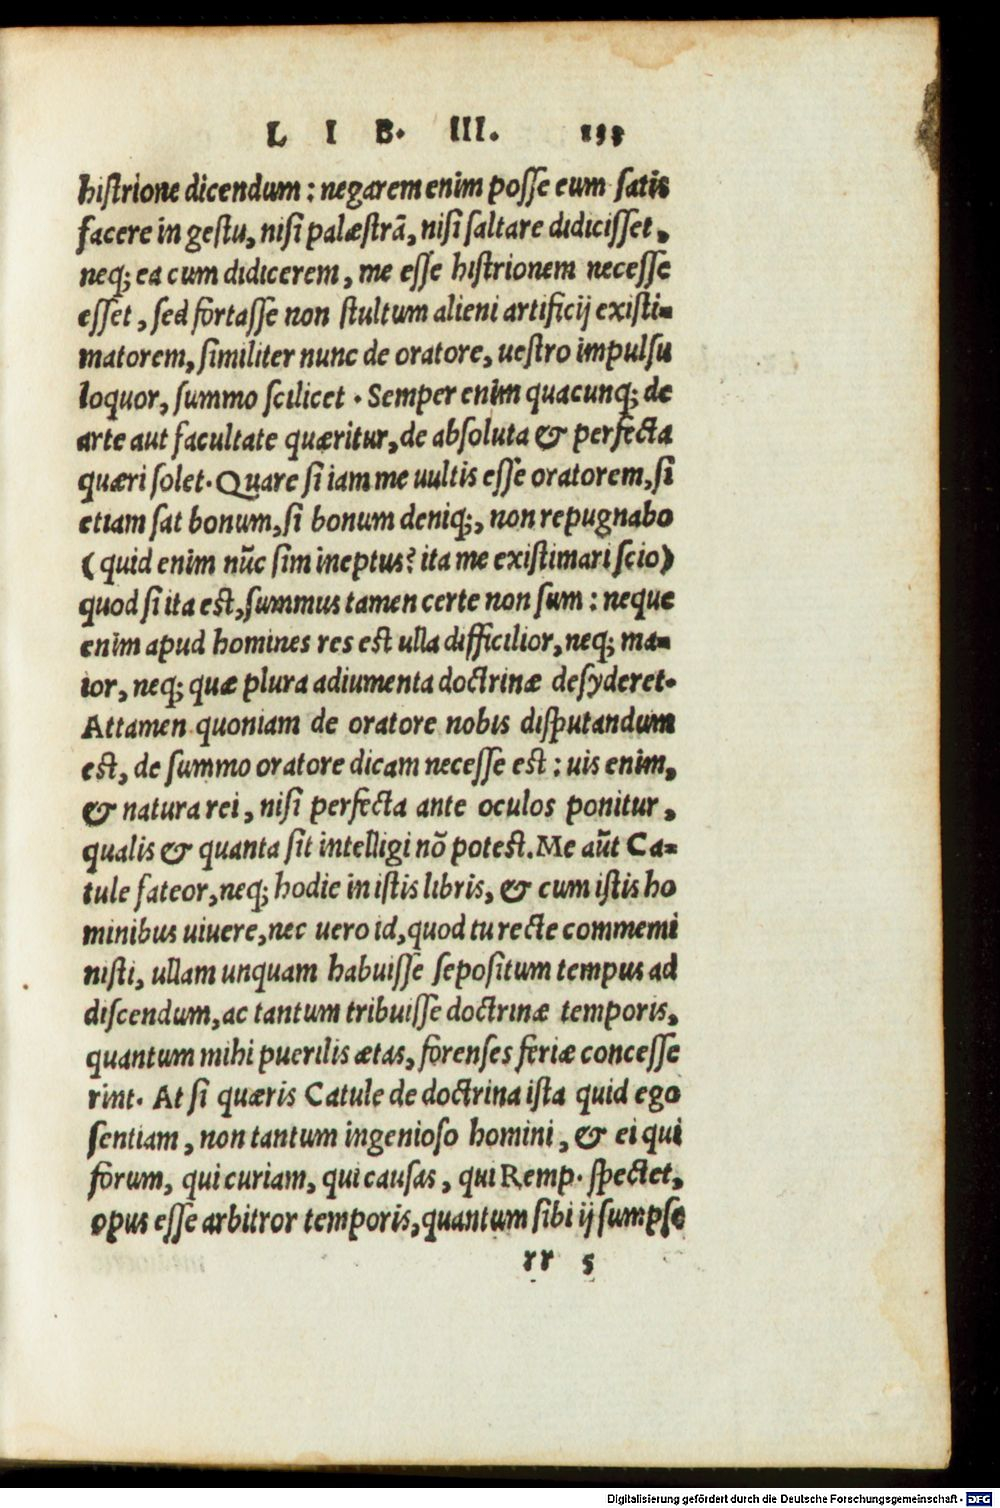 LIB. III. 133
histrione dicendum: negarem enim posse eum satis
facere in gestu, nisi palæstrã, nisi saltare didicisset,
neq; ea cum didicerem, me esse histrionem necesse
esset, sed fortasse non stultum alieni artificij existi-
matorem, similiter nunc de oratore, uestro impulsu
loquor, summo scilicet. Semper enim quacunq; de
arte aut facultate quæritur, de absoluta & perfecta
quæri solet. Quare si iam me uultis esse oratorem, si
etiam sat bonum, si bonum deniq;, non repugnabo
(quid enim nũc sim ineptus? ita me existimari scio)
quod si ita est, summus tamen certe non sum: neque
enim apud homines res est ulla difficilior, neq; ma-
ior, neq; quæ plura adiumenta doctrinæ desyderet.
Attamen quoniam de oratore nobis disputandum
est, de summo oratore dicam necesse est: uis enim,
& natura rei, nisi perfecta ante oculos ponitur,
qualis & quanta sit intelligi nõ potest. Me aũt Ca-
tule fateor, neq; hodie in istis libris, & cum istis ho
minibus uiuere, nec uero id, quod tu recte commemi
nisti, ullam unquam habuisse sepositum tempus ad
discendum, ac tantum tribuisse doctrinæ temporis,
quantum mihi puerilis ætas, forenses feriæ concesse
rint. At si quæris Catule de doctrina ista quid ego
sentiam, non tantum ingenioso homini, & ei qui
forum, qui curiam, qui causas, qui Remp. spectet,
opus esse arbitror temporis, quantum sibi ij sumpse
rr 5
Digitalisierung gefördert durch die Deutsche Forschungsgemeinschaft - DFG